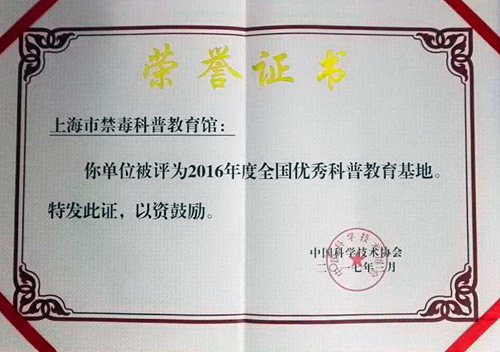 荣誉证书
上海市禁毒科普教育馆:
你单位被评为2016年度全国优秀科普教育基地。
特发此证,以资鼓励。
中国科学技术协会
二〇一七年 月